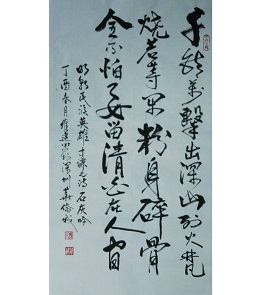 千錘萬擊出深山烈火焚
燒若等閑粉身碎骨
全不怕要留清白在人間
明朝民族英雄于謙之詩石灰吟
丁酉春月